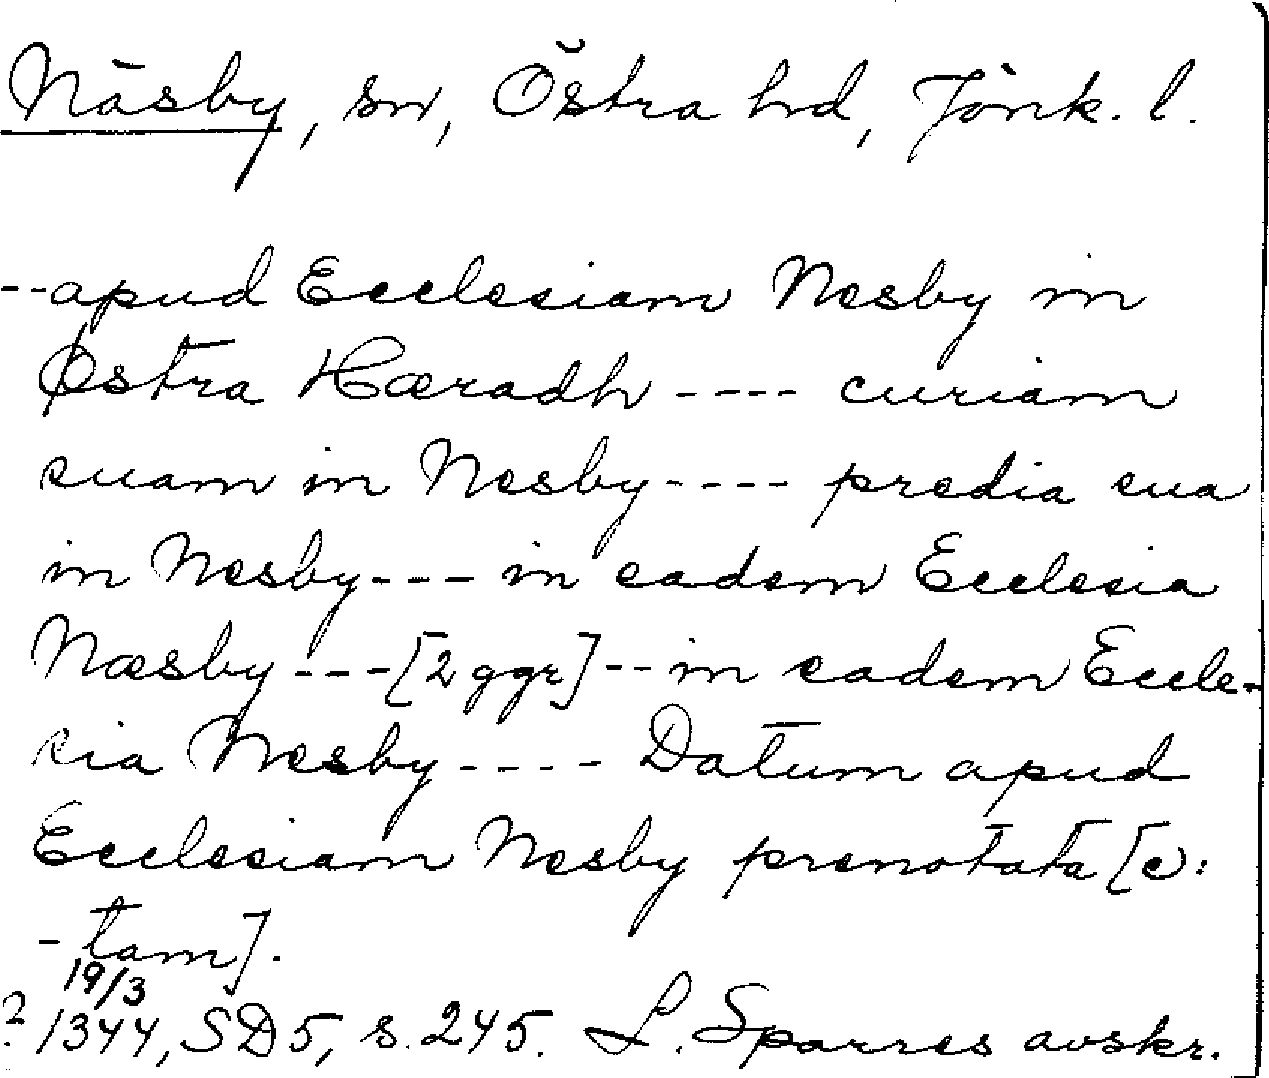 Näsby, sn, Östra hd, Jönk. l.
--apud Ecclesiam Nesby in
Østra Hæradh ---- curiam
suam in Nesby---- predia sua
in Nesby--- in eadem Ecclesia
Næsby---[2 ggr]--in eadem Eccle-
sia Nesby---- Datum apud
Ecclesiam Nesby prenotata [ɔ:
-tam].
19/3
? 1344, SD5, s. 245. L. Sparres avskr.